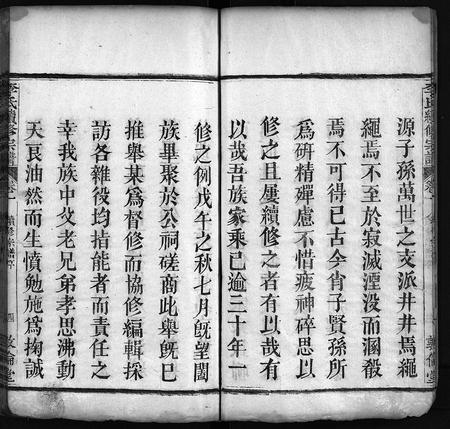 源子孫萬世之支派井井焉繩
繩焉不至於寂滅湮没而澌殺
焉不可得已古今肖子賢孫所
爲研精殫慮不惜疲神碎思以
修之且屢續修之者有以哉有
以哉吾族家乘已逾三十年一
修之例戊午之秋七月既望闔
族畢聚於公祠磋商此舉既已
推舉某爲督修而協修編輯採
訪各雜役均掯能者而責任之
幸我族中父老兄弟孝思沸動
天良油然而生憤勉施爲掬誠
李氏續修宗譜
卷一
四
敦倫堂
李氏續修宗譜
卷一
敦倫堂